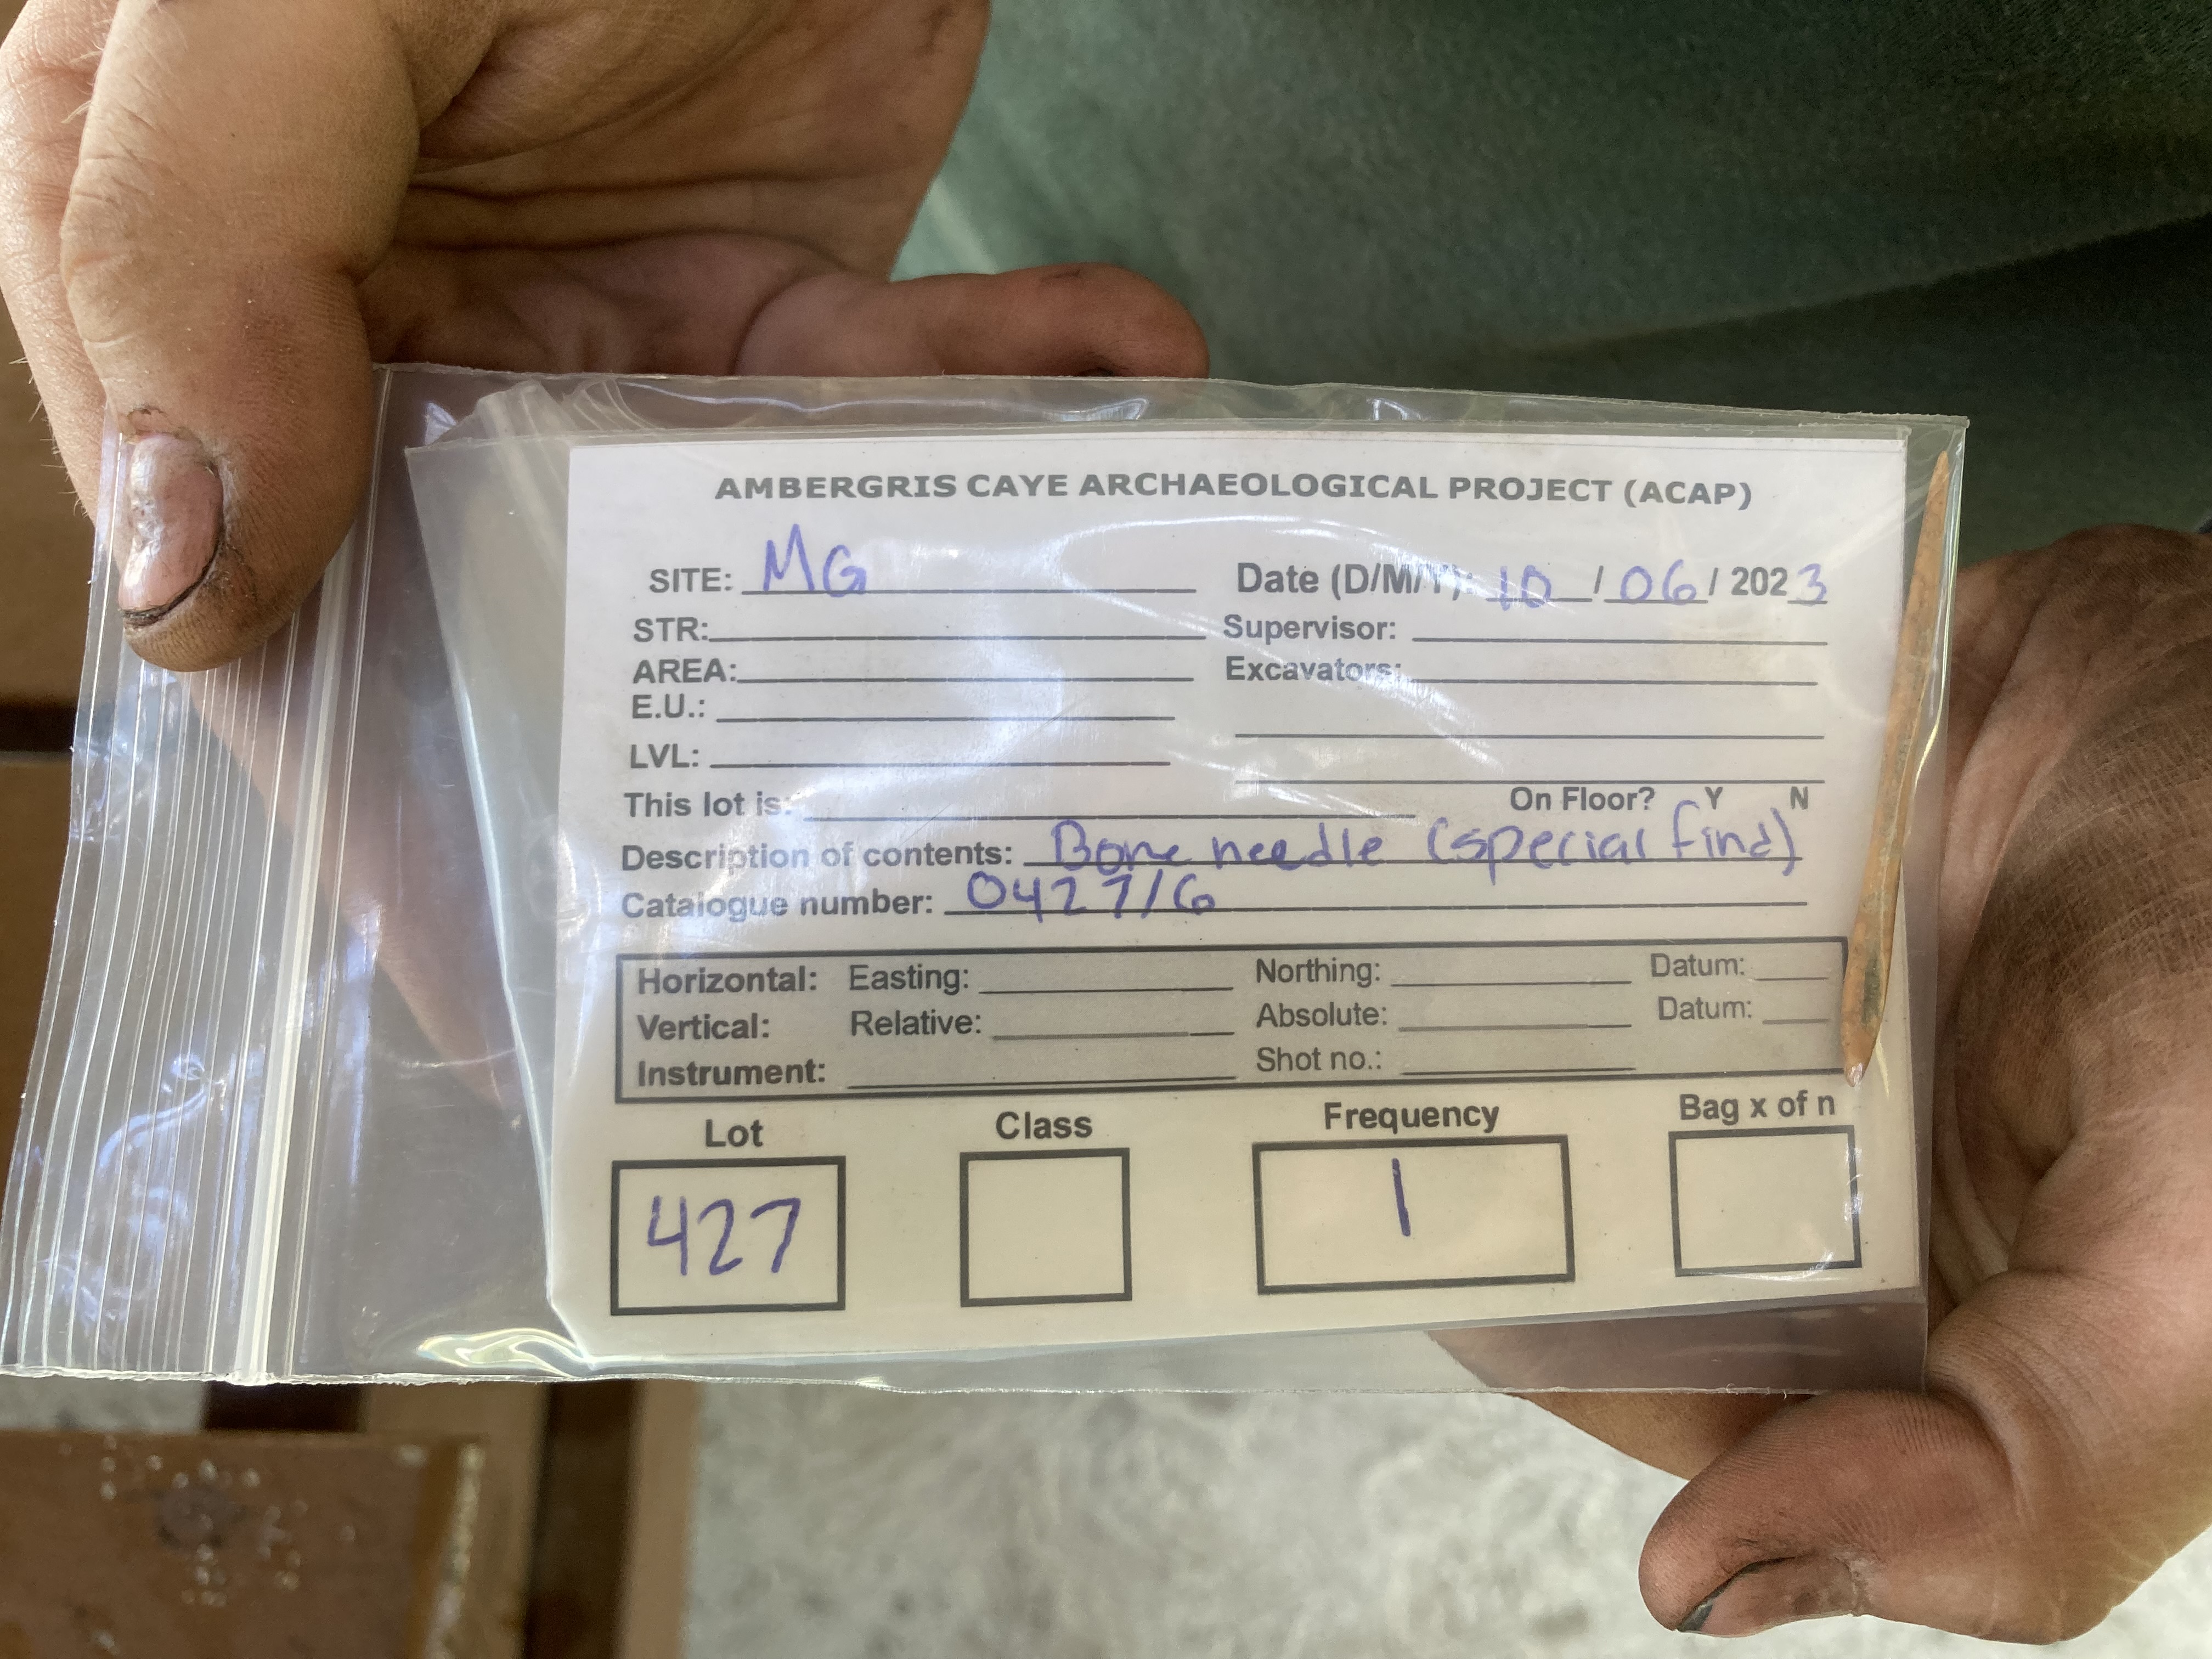 AMBERGRIS CAYE ARCHAEOLOGICAL PROJECT (ACAP)
SITE: MG Date (D/M/Y): 10 / 06 / 2023
STR: Supervisor:
AREA: Excavators:
E.U.:
LVL:
This lot is: On Floor? Y N
Description of contents: Bone needle (special find)
Catalogue number: 0427/6
Horizontal: Easting: Northing: Datum:
Vertical: Relative: Absolute: Datum:
Instrument: Shot no.:
Lot Class Frequency Bag x of n
427 1